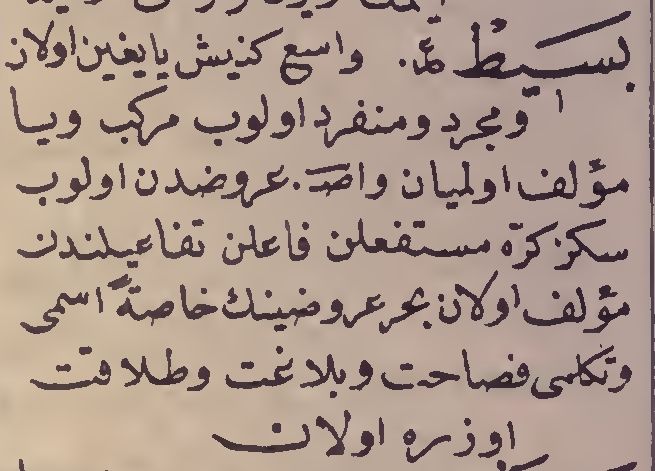 بسيط عـ. واسع كنيش يايغين اولان
ومجرد ومنفرد اولوب مركب ويا
مؤلف اولميان واصـ. عروضدن اولوب
سكز كرّه مستفعلن فاعلن تفاعيلندن
مؤلف اولان بحر عروضينك خاصةً اسمى
وتكلمى فصاحت وبلاغت وطلاقت
اوزره اولان